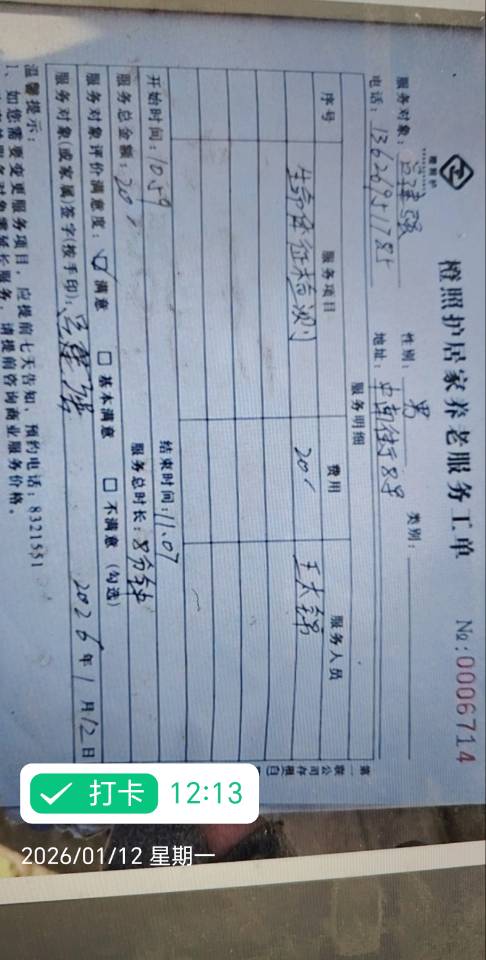 橙照护
橙照护居家养老服务工单 №:0006714
服务对象: 强 性别: 男 类别:
电话: 地址: 中南街58号
服务明细
序号 服务项目 费用 服务人员
生命体征检测 20
开始时间: 10.59 结束时间: 11.07
服务总金额: 20 服务总时长: 8分钟
服务对象评价满意度: ☑ 满意 □ 基本满意 □ 不满意 (勾选)
服务对象(或家属)签字(按手印): 2026年1月12日
温馨提示:
1、如您需要变更服务项目,应提前七天告知,预约电话:8321551
服务对象需延长服务,请提前咨询商业服务价格。
第一联 公司存根
打卡 12:13
2026/01/12 星期一